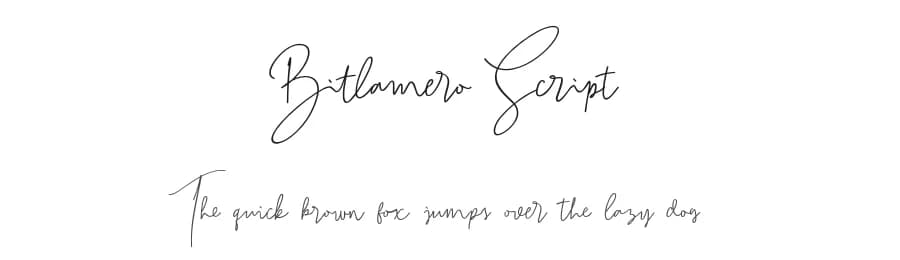 Bitlamero Script
The quick brown fox jumps over the lazy dog